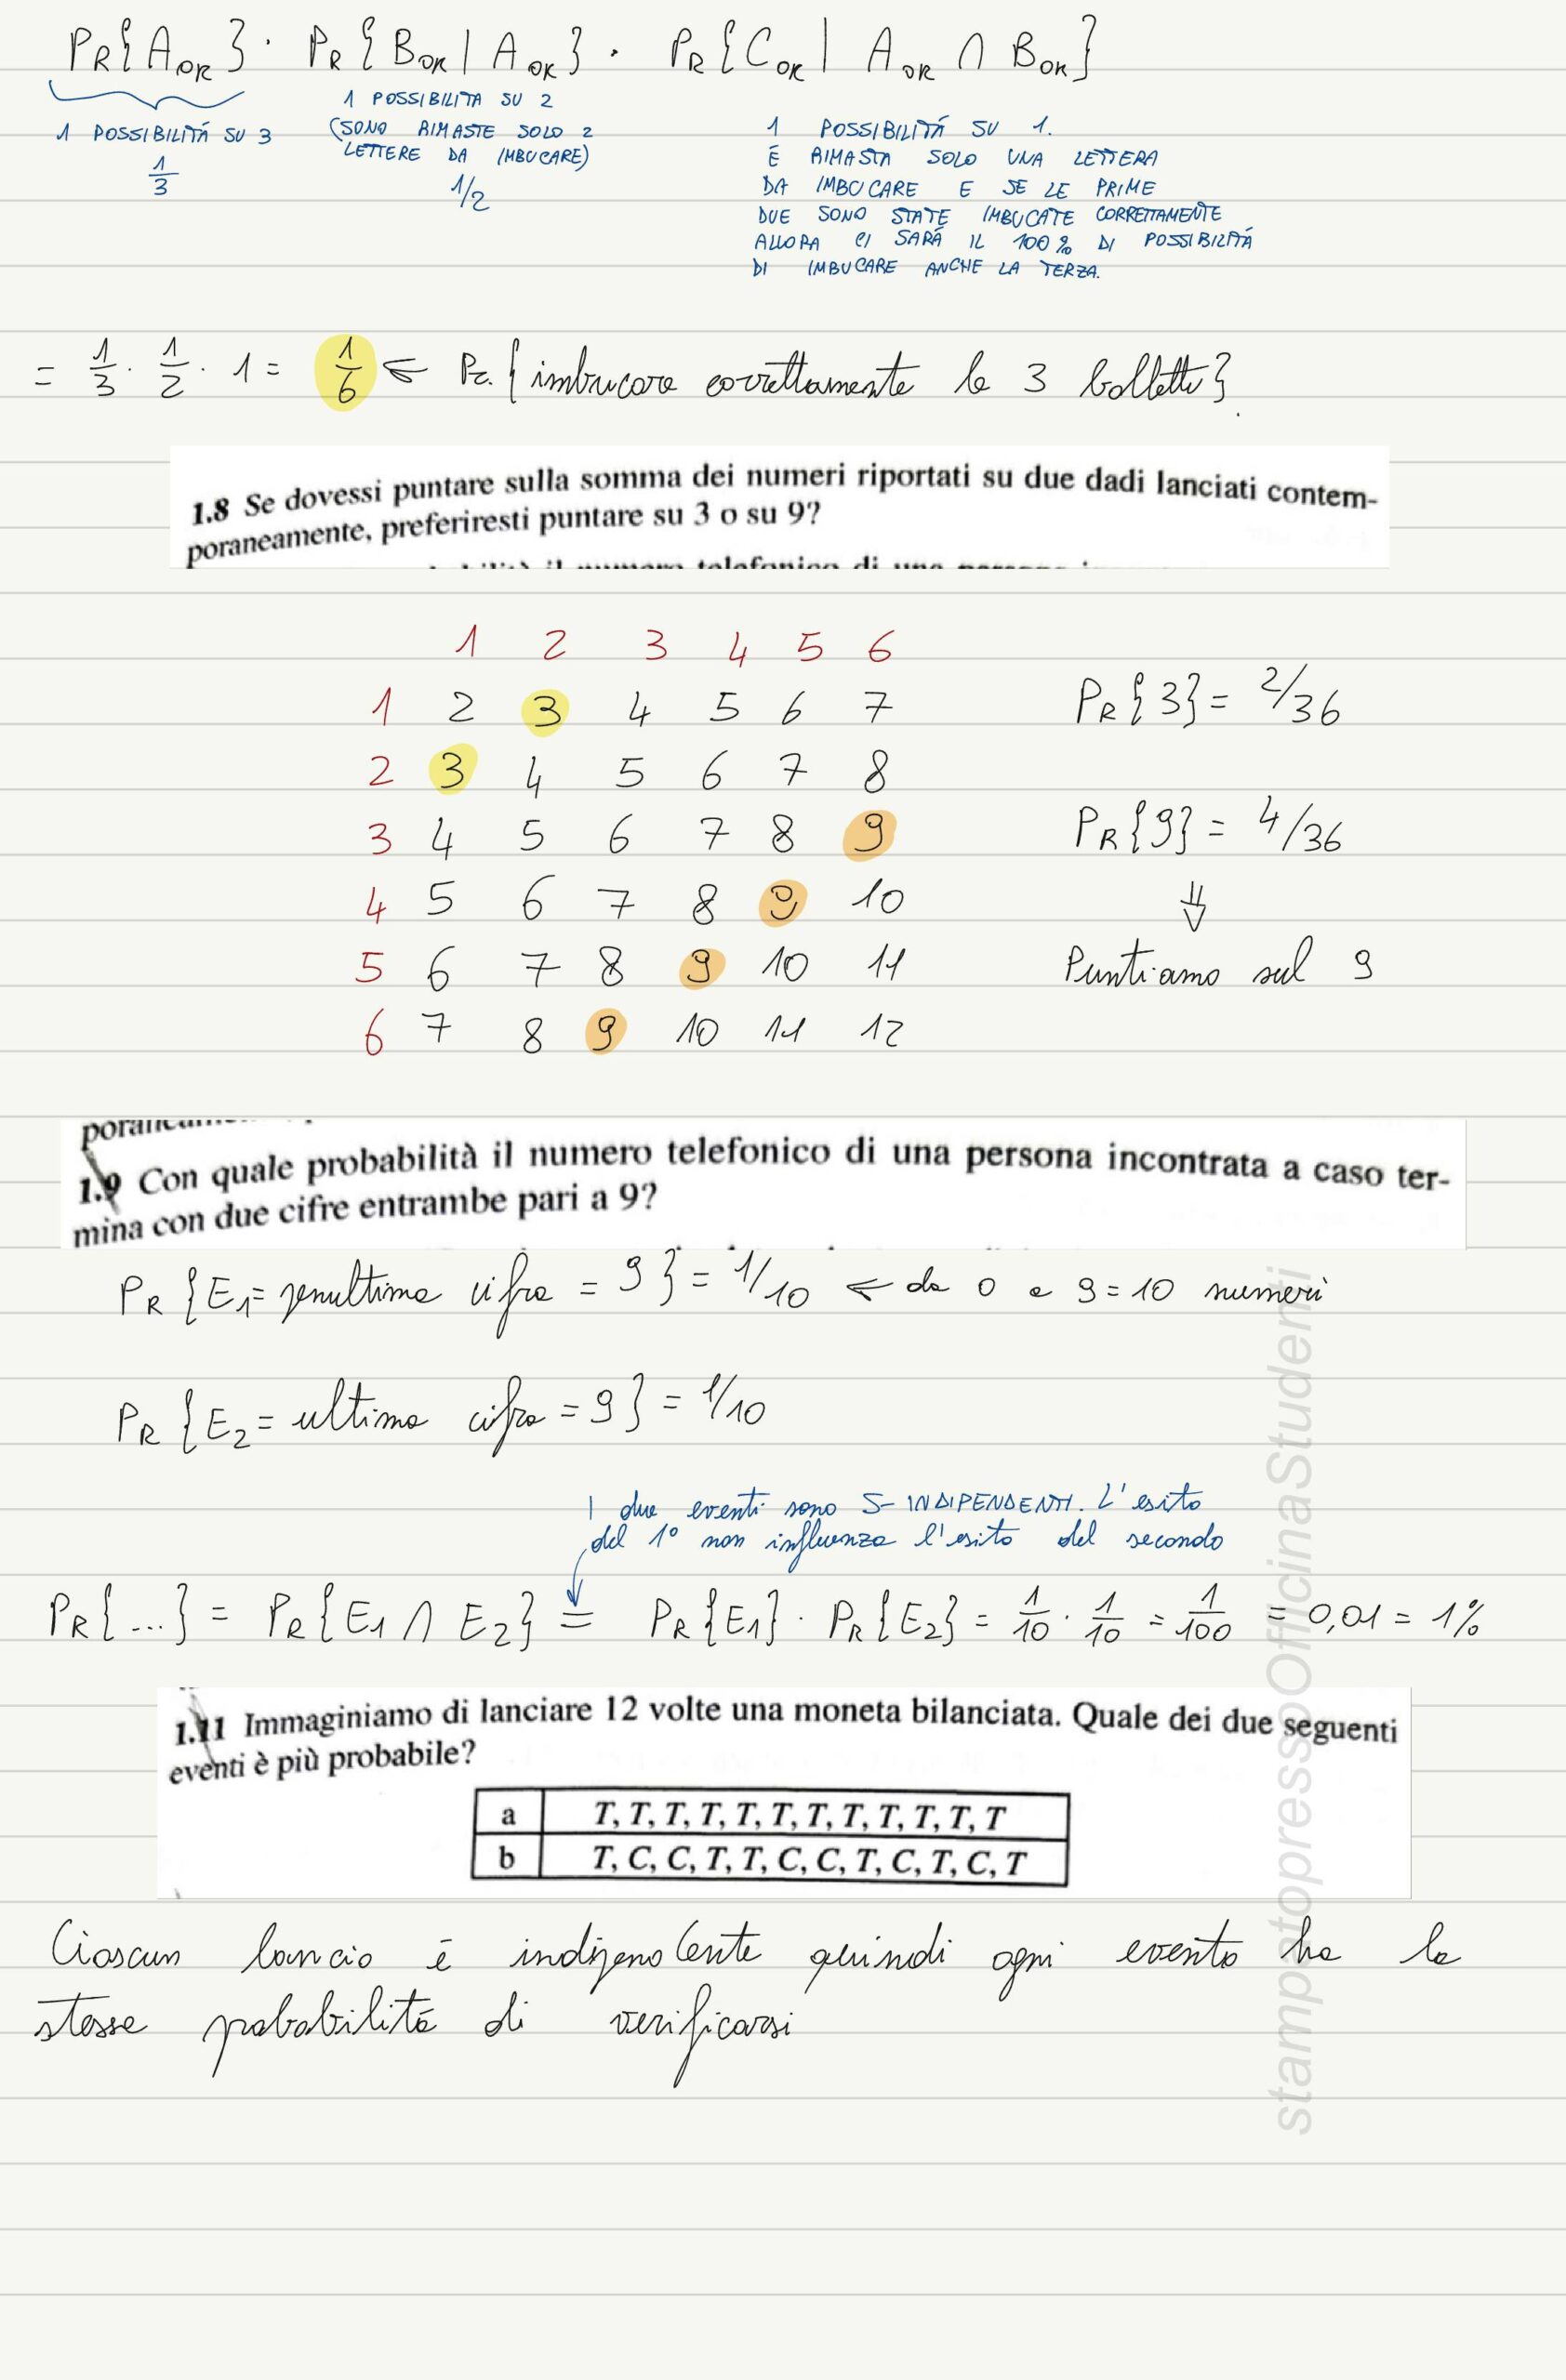 PR{A_OK} · PR{B_OK | A_OK} · PR{C_OK | A_OK ∩ B_OK}
1 POSSIBILITÁ SU 3
1/3
1 POSSIBILITA SU 2
(SONO RIMASTE SOLO 2
LETTERE DA IMBUCARE)
1/2
1 POSSIBILITÁ SU 1.
É RIMASTA SOLO UNA LETTERA
DA IMBUCARE E SE LE PRIME
DUE SONO STATE IMBUCATE CORRETTAMENTE
ALLORA CI SARÁ IL 100% DI POSSIBILTÁ
DI IMBUCARE ANCHE LA TERZA.
= 1/3 · 1/2 · 1 = 1/6 ⇐ Pr. {imbucare correttamente le 3 bollette}.
1.8 Se dovessi puntare sulla somma dei numeri riportati su due dadi lanciati contem-
poraneamente, preferiresti puntare su 3 o su 9?
1 2 3 4 5 6
1 2 3 4 5 6 7
2 3 4 5 6 7 8
3 4 5 6 7 8 9
4 5 6 7 8 9 10
5 6 7 8 9 10 11
6 7 8 9 10 11 12
PR{3} = 2/36
PR{9} = 4/36
⇓
Puntiamo sul 9
1.9 Con quale probabilità il numero telefonico di una persona incontrata a caso ter-
mina con due cifre entrambe pari a 9?
PR {E1 = penultima cifra = 9} = 1/10 ⇐ da 0 a 9 = 10 numeri
PR {E2 = ultima cifra = 9} = 1/10
I due eventi sono S-INDIPENDENTI. L'esito
del 1° non influenza l'esito del secondo
PR{...} = PR{E1 ∩ E2} = PR{E1} · PR{E2} = 1/10 · 1/10 = 1/100 = 0,01 = 1%
1.11 Immaginiamo di lanciare 12 volte una moneta bilanciata. Quale dei due seguenti
eventi è più probabile?
a T, T, T, T, T, T, T, T, T, T, T, T
b T, C, C, T, T, C, C, T, C, T, C, T
Ciascun lancio é indipendente quindi ogni evento ha la
stessa probabilitá di verificarsi
stampatopressoOfficinaStudenti